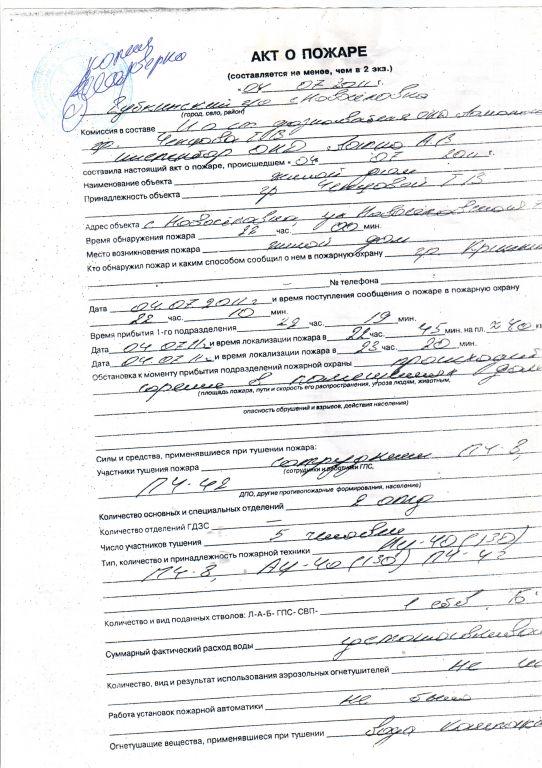 копия
АКТ О ПОЖАРЕ
(составляется не менее, чем в 2 экз.)
" 04 07 2011 г.
(город, село, район)
Комиссия в составе И о ст дознавателя ОНД
гр. Чепурова Т.В
инспектор ОНД
составила настоящий акт о пожаре, происшедшем " 04 07 2011 г.
Наименование объекта жилой дом
Принадлежность объекта гр Чепуровой Т В
Адрес объекта с ул
Время обнаружения пожара 22 час. 00 мин.
Место возникновения пожара жилой дом
Кто обнаружил пожар и каким способом сообщил о нем в пожарную охрану гр.
— № телефона —
Дата 04.07.2011г и время поступления сообщения о пожаре в пожарную охрану
22 час. 10 мин.
Время прибытия 1-го подразделения 22 час. 19 мин.
Дата 04 07 11г и время локализации пожара в 22 час. 45 мин. на пл. ≈ 40
Дата 04.07 11г и время локализации пожара в 23 час. 20 мин.
Обстановка к моменту прибытия подразделений пожарной охраны происходит
горение в помещениях дома
(площадь пожара, пути и скорость его распространения, угроза людям, животным,
опасность обрушений и взрывов, действия населения)
Силы и средства, применявшиеся при тушении пожара:
Участники тушения пожара сотрудники ПЧ-8,
(сотрудники и работники ГПС,
ПЧ-42
ДПО, другие противопожарные формирования, население)
Количество основных и специальных отделений 2 отд
Количество отделений ГДЗС —
Число участников тушения 5 человек
Тип, количество и принадлежность пожарной техники АЦ-40(130)
ПЧ-8, АЦ-40(130) ПЧ-42
Количество и вид поданных стволов: Л-А-Б- ГПС- СВП- 1 ств "Б"
Суммарный фактический расход воды
Количество, вид и результат использования аэрозольных огнетушителей не
Работа установок пожарной автоматики не было
Огнетушащие вещества, применявшиеся при тушении вода